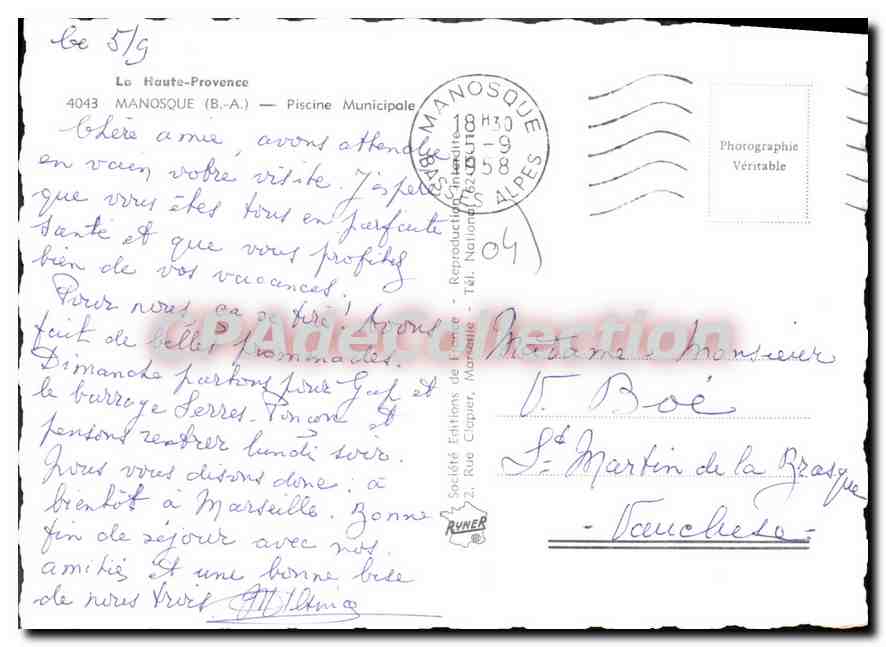 Le 5/9
La Haute-Provence
4043 MANOSQUE (B.-A.) — Piscine Municipale
Chère amie, avons attendu
en vain votre visite. J'espère
que vous êtes tous en parfaite
santé et que vous profitez
bien de vos vacances.
Pour nous ça se tire! Avons
fait de belles promenades.
Dimanche partons pour Gap et
le barrage Serres-Ponçon et
pensons rentrer lundi soir.
Nous vous disons donc: à
bientôt à Marseille. Bonne
fin de séjour avec nos
amitiés et une bonne bise
de nous trois.
Société Editions de France - Reproduction Interdite
2, Rue Clapier, Marseille - Tél. National
RYNER
MANOSQUE
18 H30
5-9
1958
BASSES ALPES
04
Photographie
Véritable
Madame Monsieur
V. Boé
St Martin de la Brasque
- Vaucluse -
CPAdeCollection